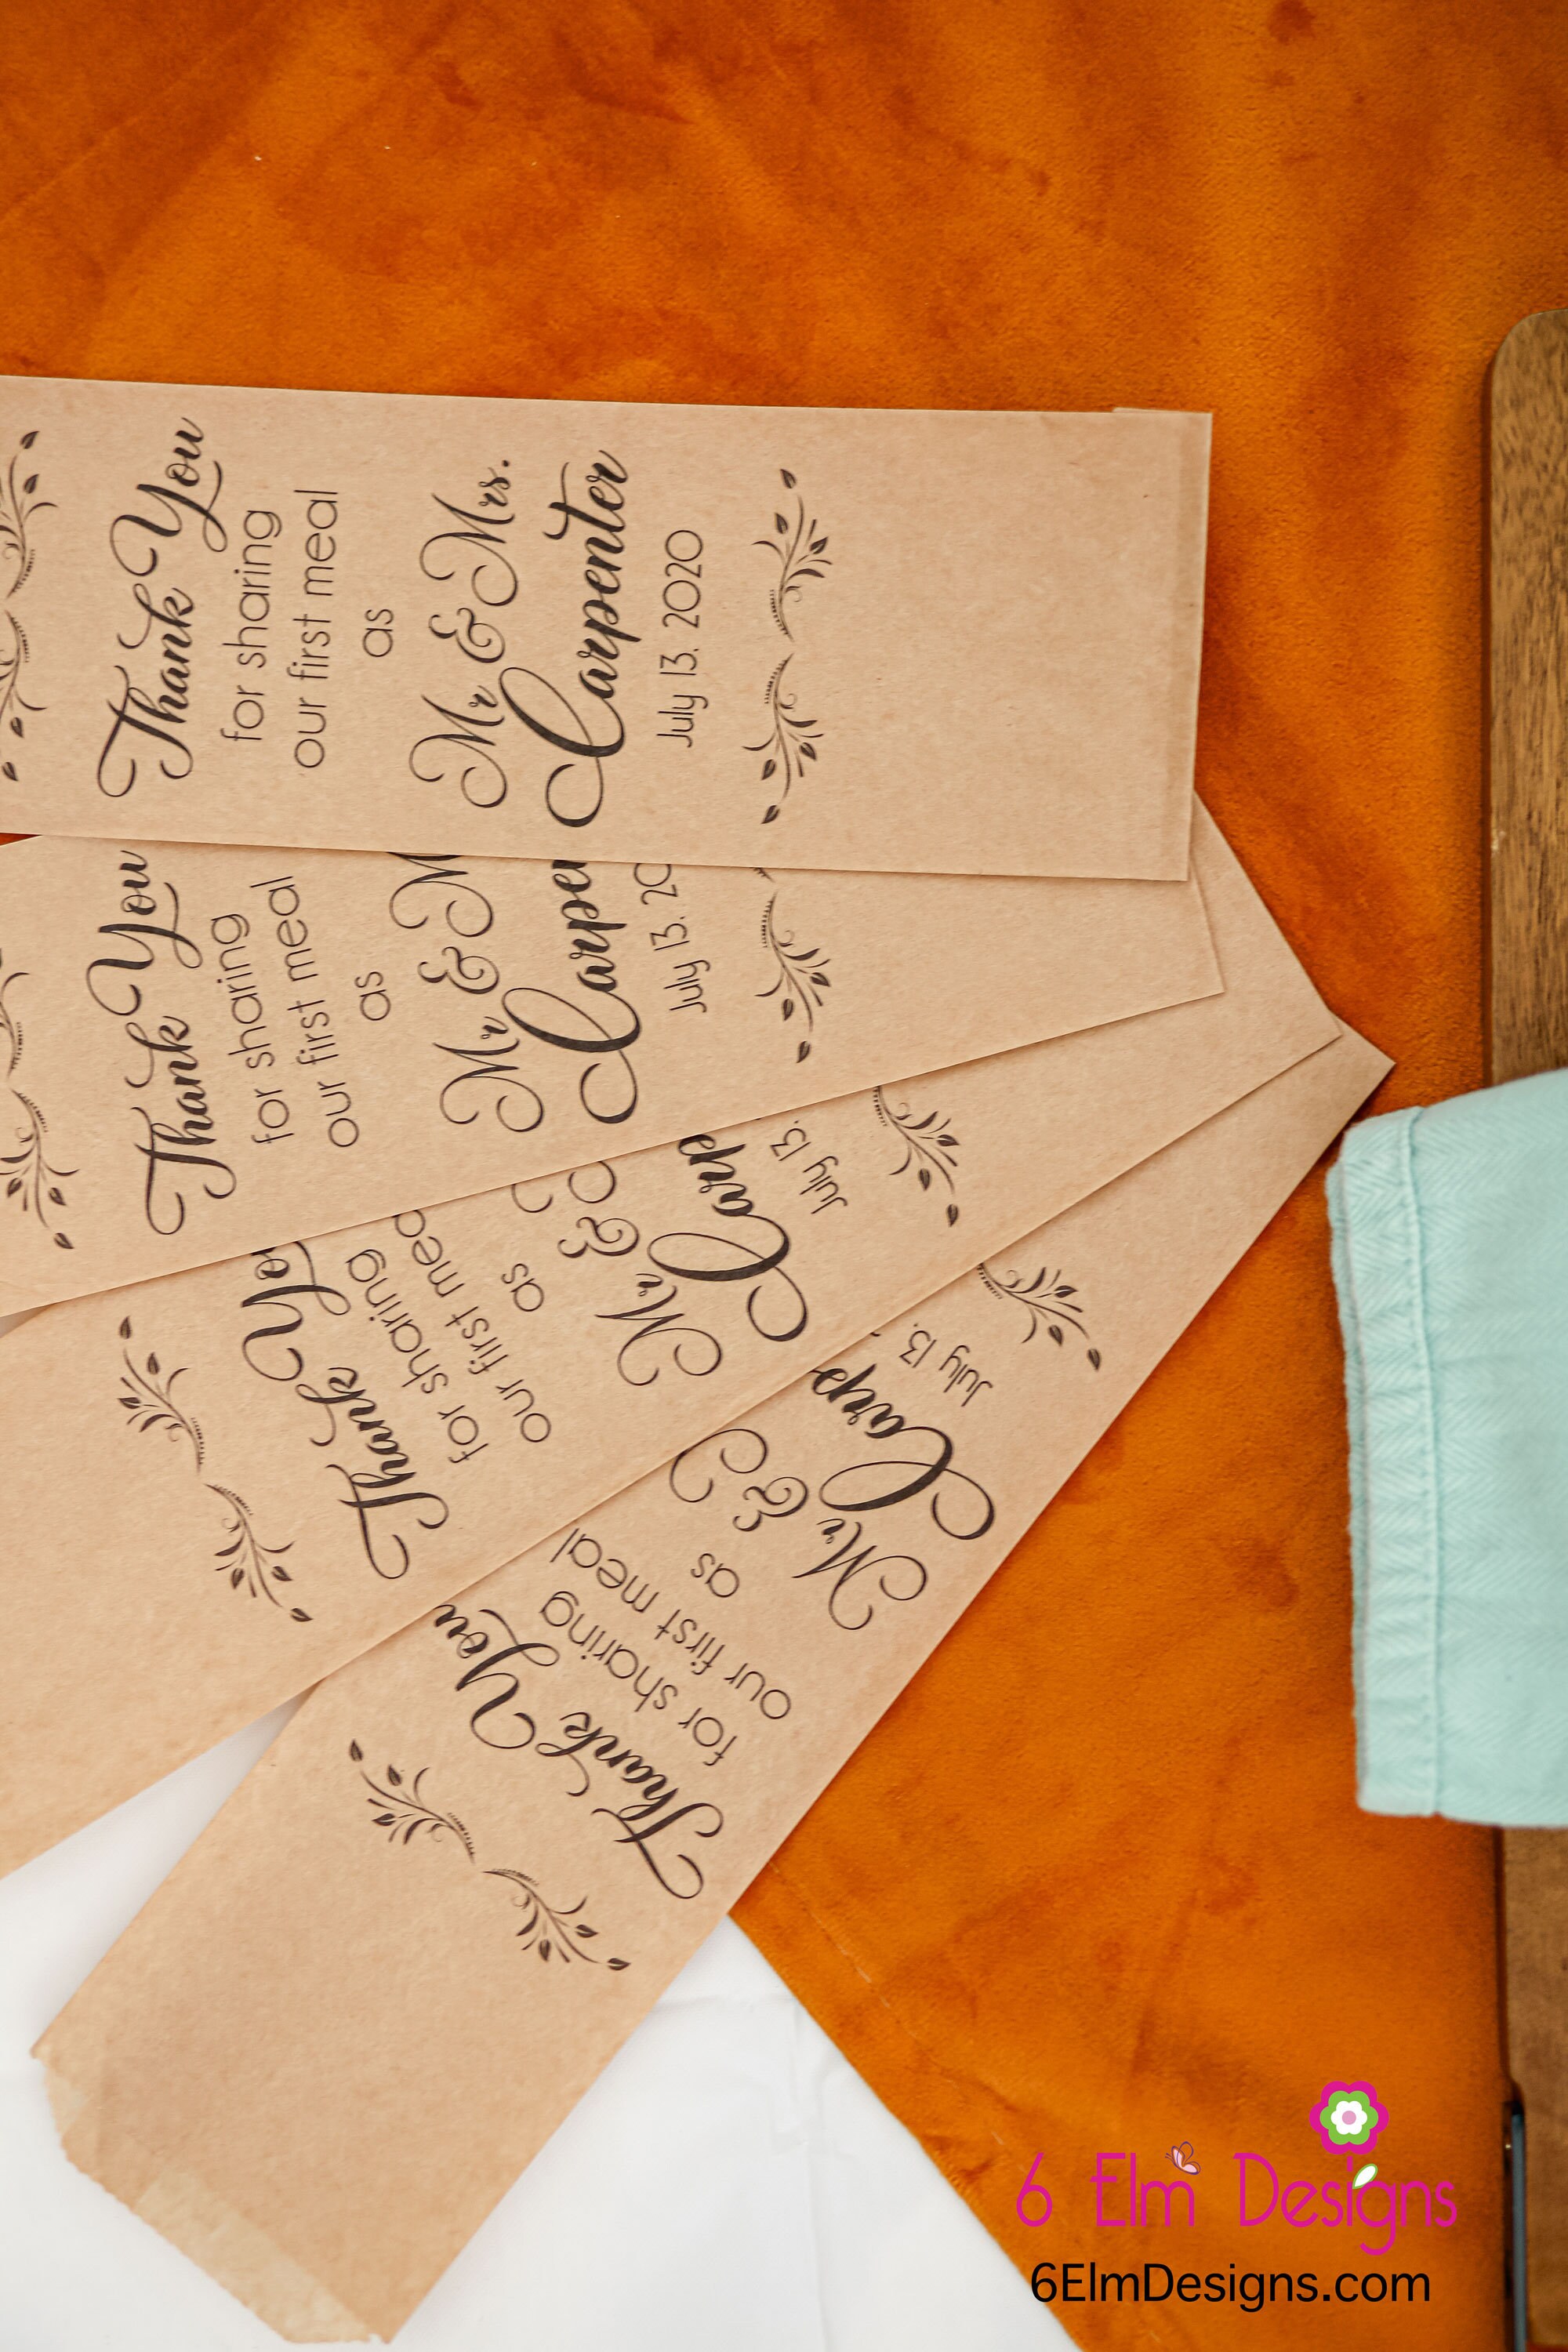 Thank You
for sharing
our first meal
as
Mr & Mrs.
Carpenter
July 13, 2020
Thank You
for sharing
our first meal
as
Mr & M
Carpen
July 13, 20
Thank You
for sharing
our first mea
as
Mr &
Carp
July 13,
Thank You
for sharing
our first meal
as
Mr &
Carp
July 13,
6 Elm Designs
6ElmDesigns.com